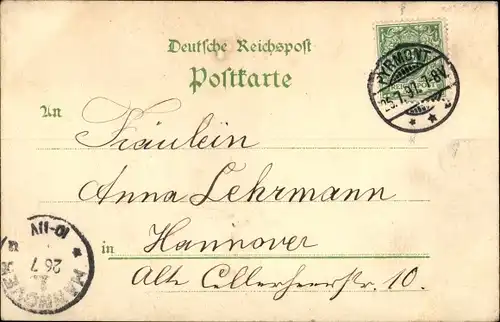 Deutsche Reichspost
Postkarte
PYRMONT
25.7.97.7-8V.
An
Fräulein
Anna Lehrmann
in Hannover
Alte Cellerheerstr. 10.
HANNOVER
26 7
10-11V